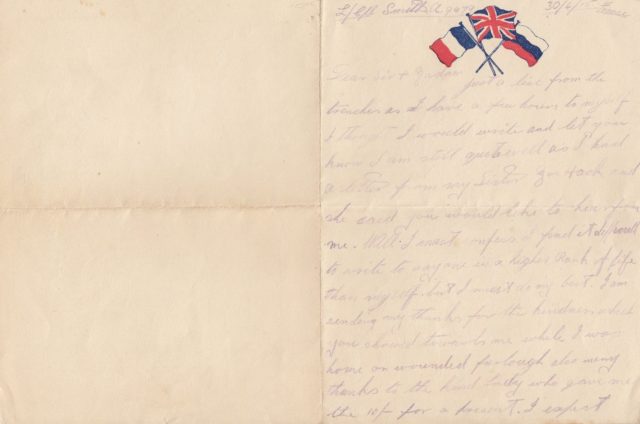 L/Cpl Smith A 9479 30/4/15 France
Dear Sir & Madam
just a line from the
trenches as I have a few hours to myself
I thought I would write and let you
know I am still quite well as I had
a letter from my Sister and
she said you would like to hear from
me. Well I must confess I find it difficult
to write to anyone in a higher Rank of life
than myself but I must do my best. I am
sending my thanks for the kindness which
you showed towards me while I was
home on wounded furlough also many
thanks to the kind Lady who gave me
the 10/- for a present. I expect